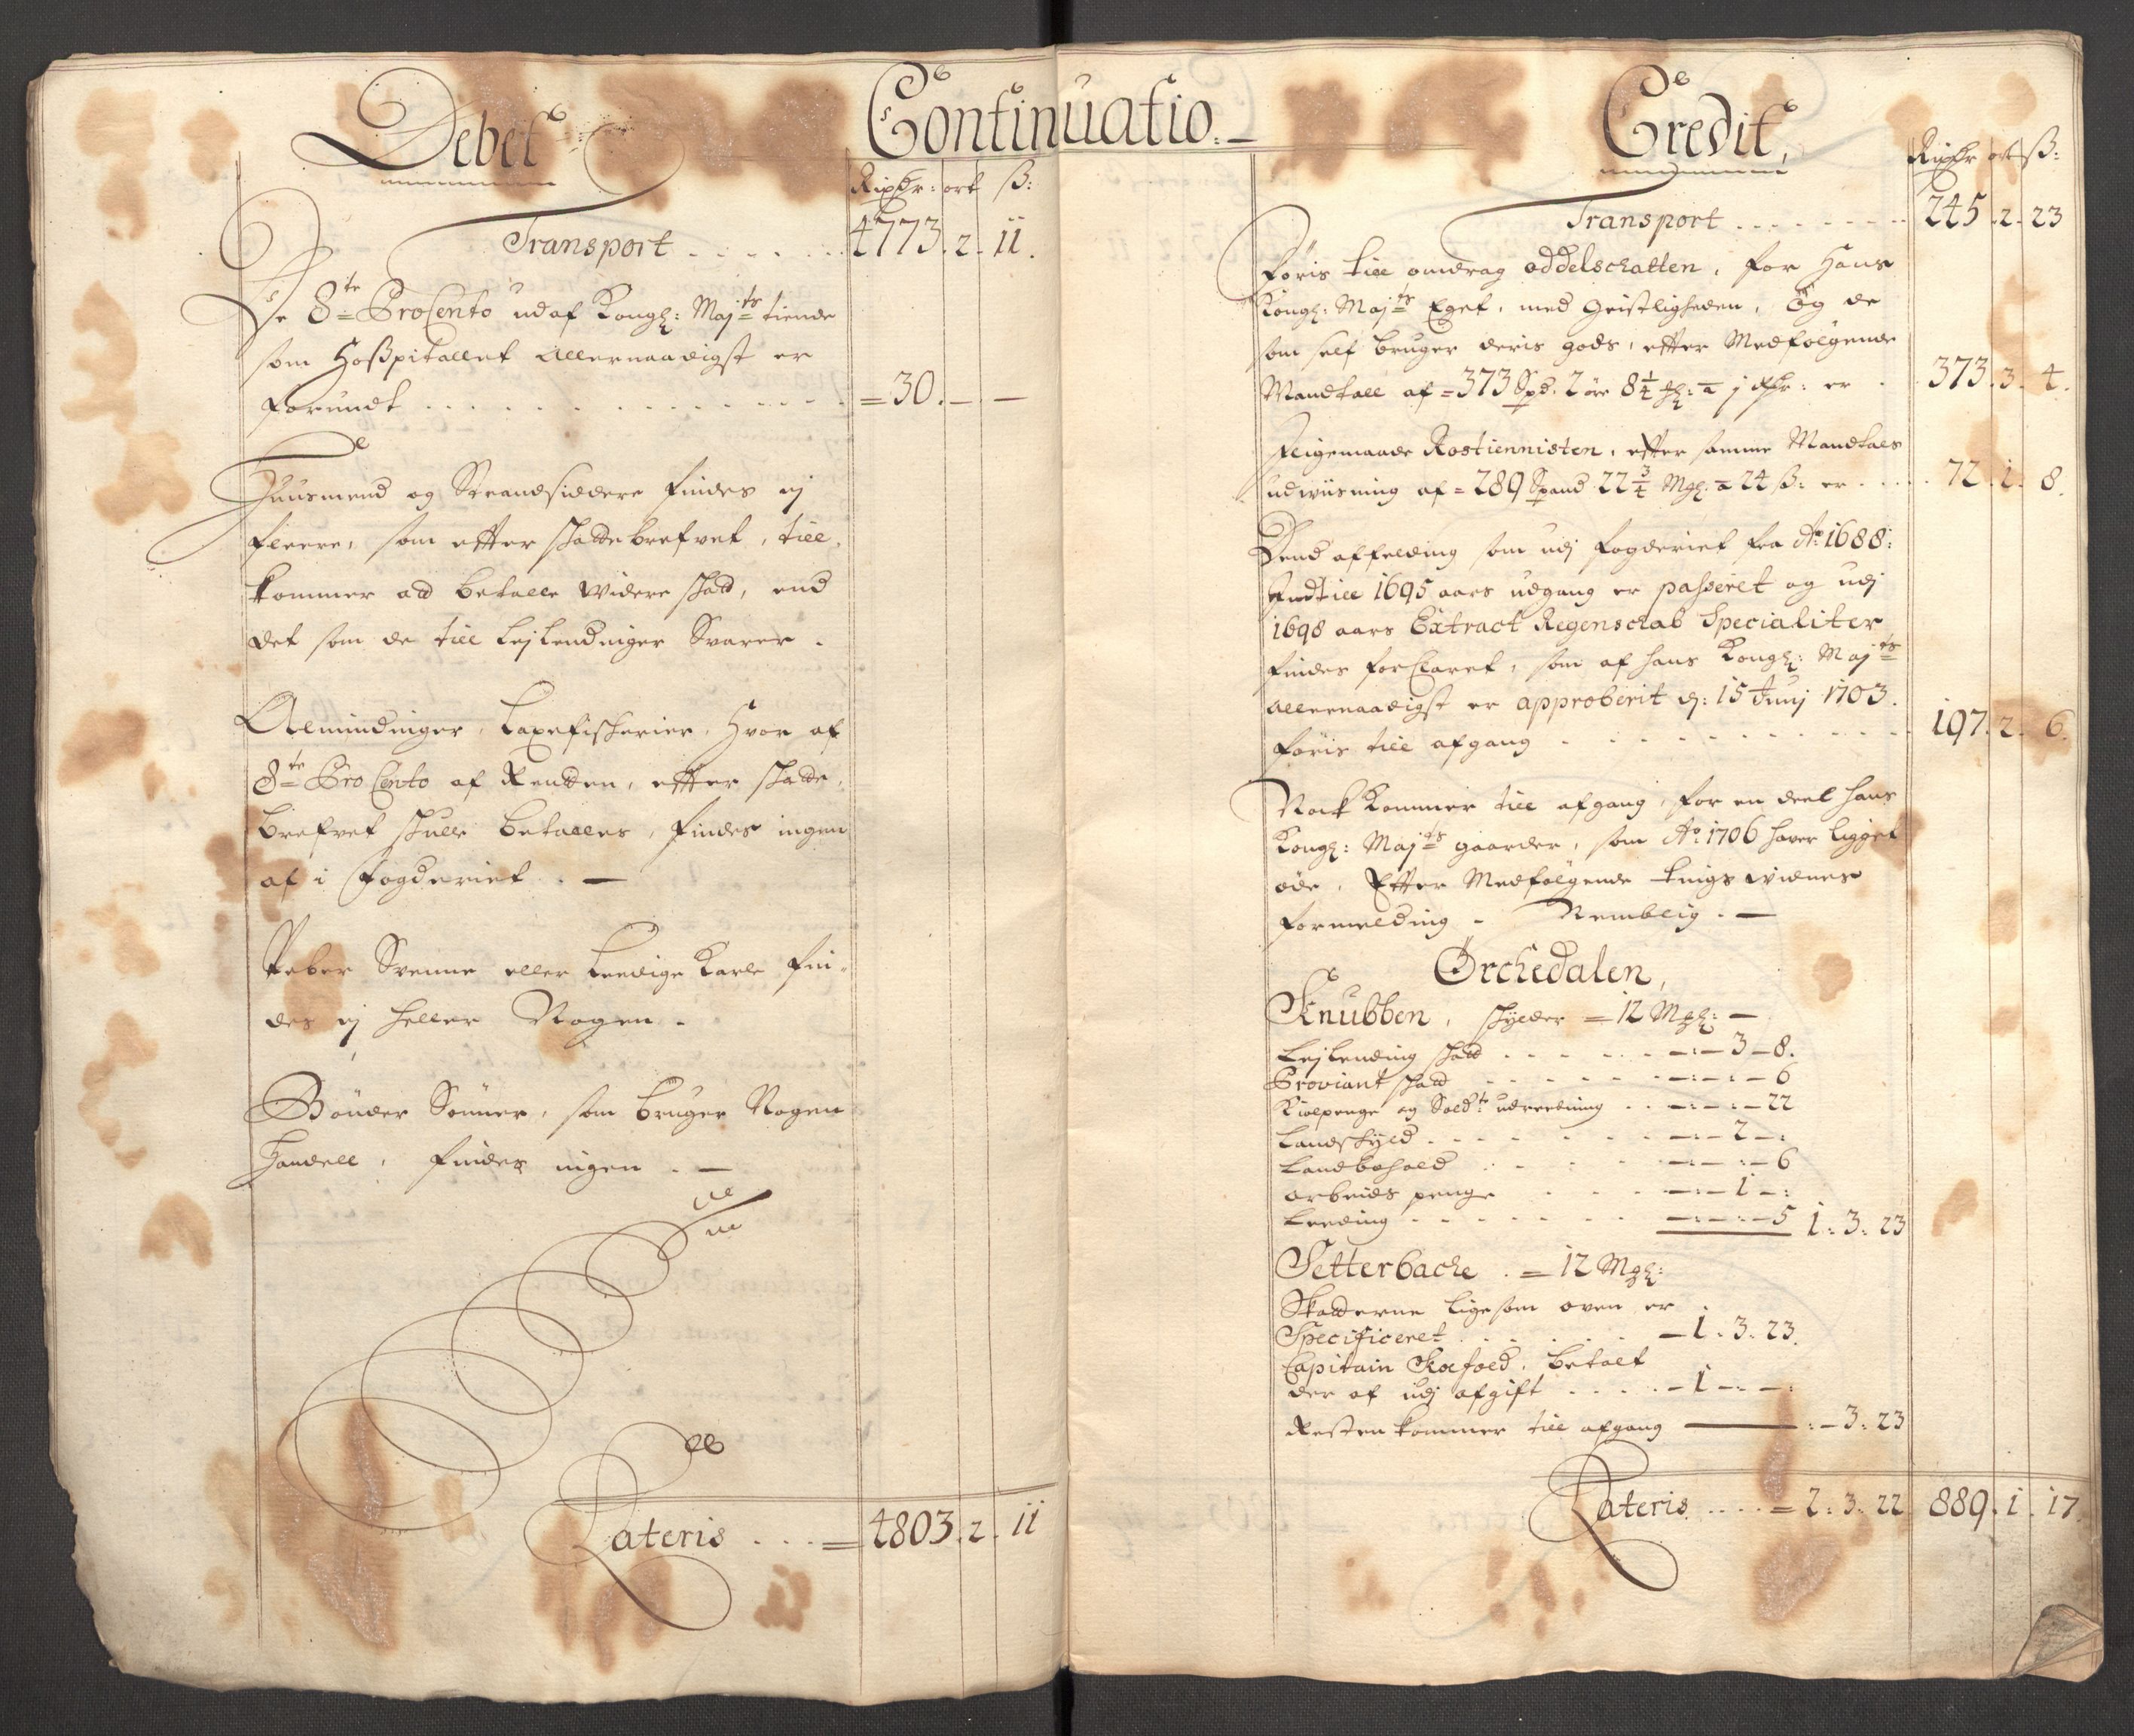 Debet Continuatio. Credit,
Rixdr: ort ß:
Transport . . . . . . 4773. 2. 11.
De 8te ProCento udaf Kongl: Majts tiende
som Hoßpitallet allernaadigst er
forundt . . . . . . . . . . = 30. — —
Huusmend og Strandsiddere findes ej
fleere, som efter skattebrefvet, till
kommer att betalle widere skatt, end
det som de till Lejlendinger Svarer.
Almindinger, Laxefischerier, Hvor af
8te Pro Cento af Rendten, efter skatte
brefvet skulle betalles, findes ingen
af i fogderiet. —
Peber Svenne eller Leedige Karle fin-
des ej heller Nogen.
Bönder Sönner, som bruger Nogen
Handell, findes ingen. —
Lateris . . . = 4803. 2. 11
Rixdr ort ß:
Transport . . . . . . . 245. 2. 23
Föris till omdrag oddelschatten, for Hans
Kongl: Majts Eget, med Geistligheden, Og de
som self bruger deris gods, efter Medfölgende
Mandtall af = 373 Spd. 2 öre 8¼ Mgl: a 1 Rdr: er . 373. 3. 4.
Ligemaade Rostiennisten, efter samme Mandtals
udwiisning af = 289 Spand 22¾ Mgl: a 24 ß: er . . . 72. 1. 8.
Dend affelding som udj fogderiet fra Ao 1688:
Indtill 1695 aars udgang er passeret og udj
1698 aars Extract Regenschab Specialiter
findes forClaret, som af Hans Kongl: Majts
allernaadigst er approberit d: 15 Junj 1703.
föris till afgang . . . . . . . . . 197. 2. 6.
Noch Kommer till afgang, for en deel Hans
Kongl: Majts gaarder, som Ao 1706 haver ligget
øde, Efter Medfölgende tings widnes
formelding. Nemblig. —
Orchedalen,
Knubben, skylder = 12 Mgl: —
Lejlending skatt . . . . . . —:— 3 — 8.
Proviant skatt . . . . . —:—:— 6
Kiolpenge og Soldte udreedning . . —:—:— 22
Landskyld . . . . . . . —:— 2 —:
Landbohold . . . . —:—:— 6
Arbeids penge . . . —:— 1 —:
Leeding . . . . . . —:—:— 5 1: 3: 23
Setterbache . = 12 Mgl:
Skatterne ligesom oven er
Specificeret . . . . . . — 1. 3. 23.
Capitain Koefoed, betalt
der af udj afgift . . . . — 1 —:—:
Resten kommer till afgang — :— 3: 23
Lateris . . . . = 2: 3: 22 889. 1. 17.